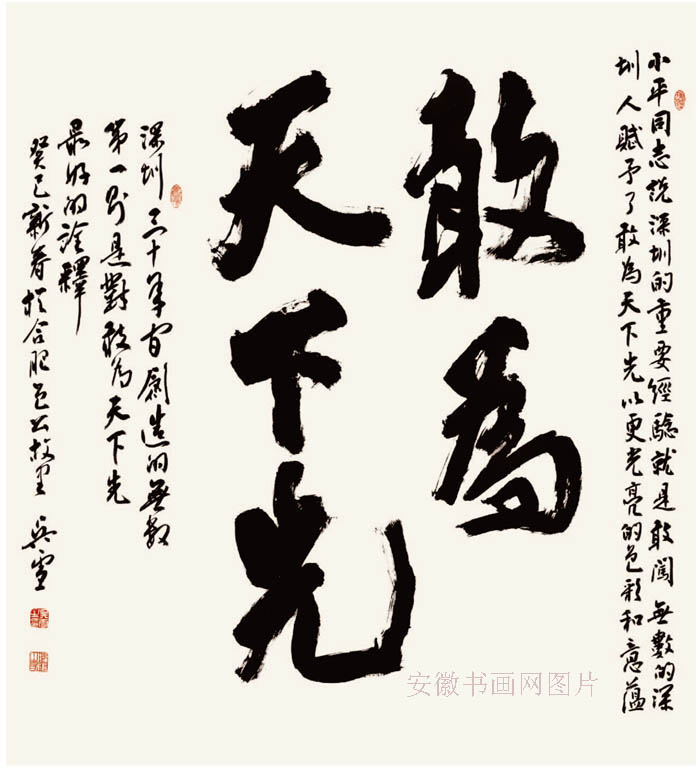 小平同志説深圳的重要經驗就是敢闖無數的深
圳人賦予了敢為天下先以更光亮的色彩和意蘊
敢為
天下先
深圳三十年間創造的無數
第一則是對敢為天下先
最好的詮釋
癸巳新春於合肥包公故里 吳雪
安徽书画网图片